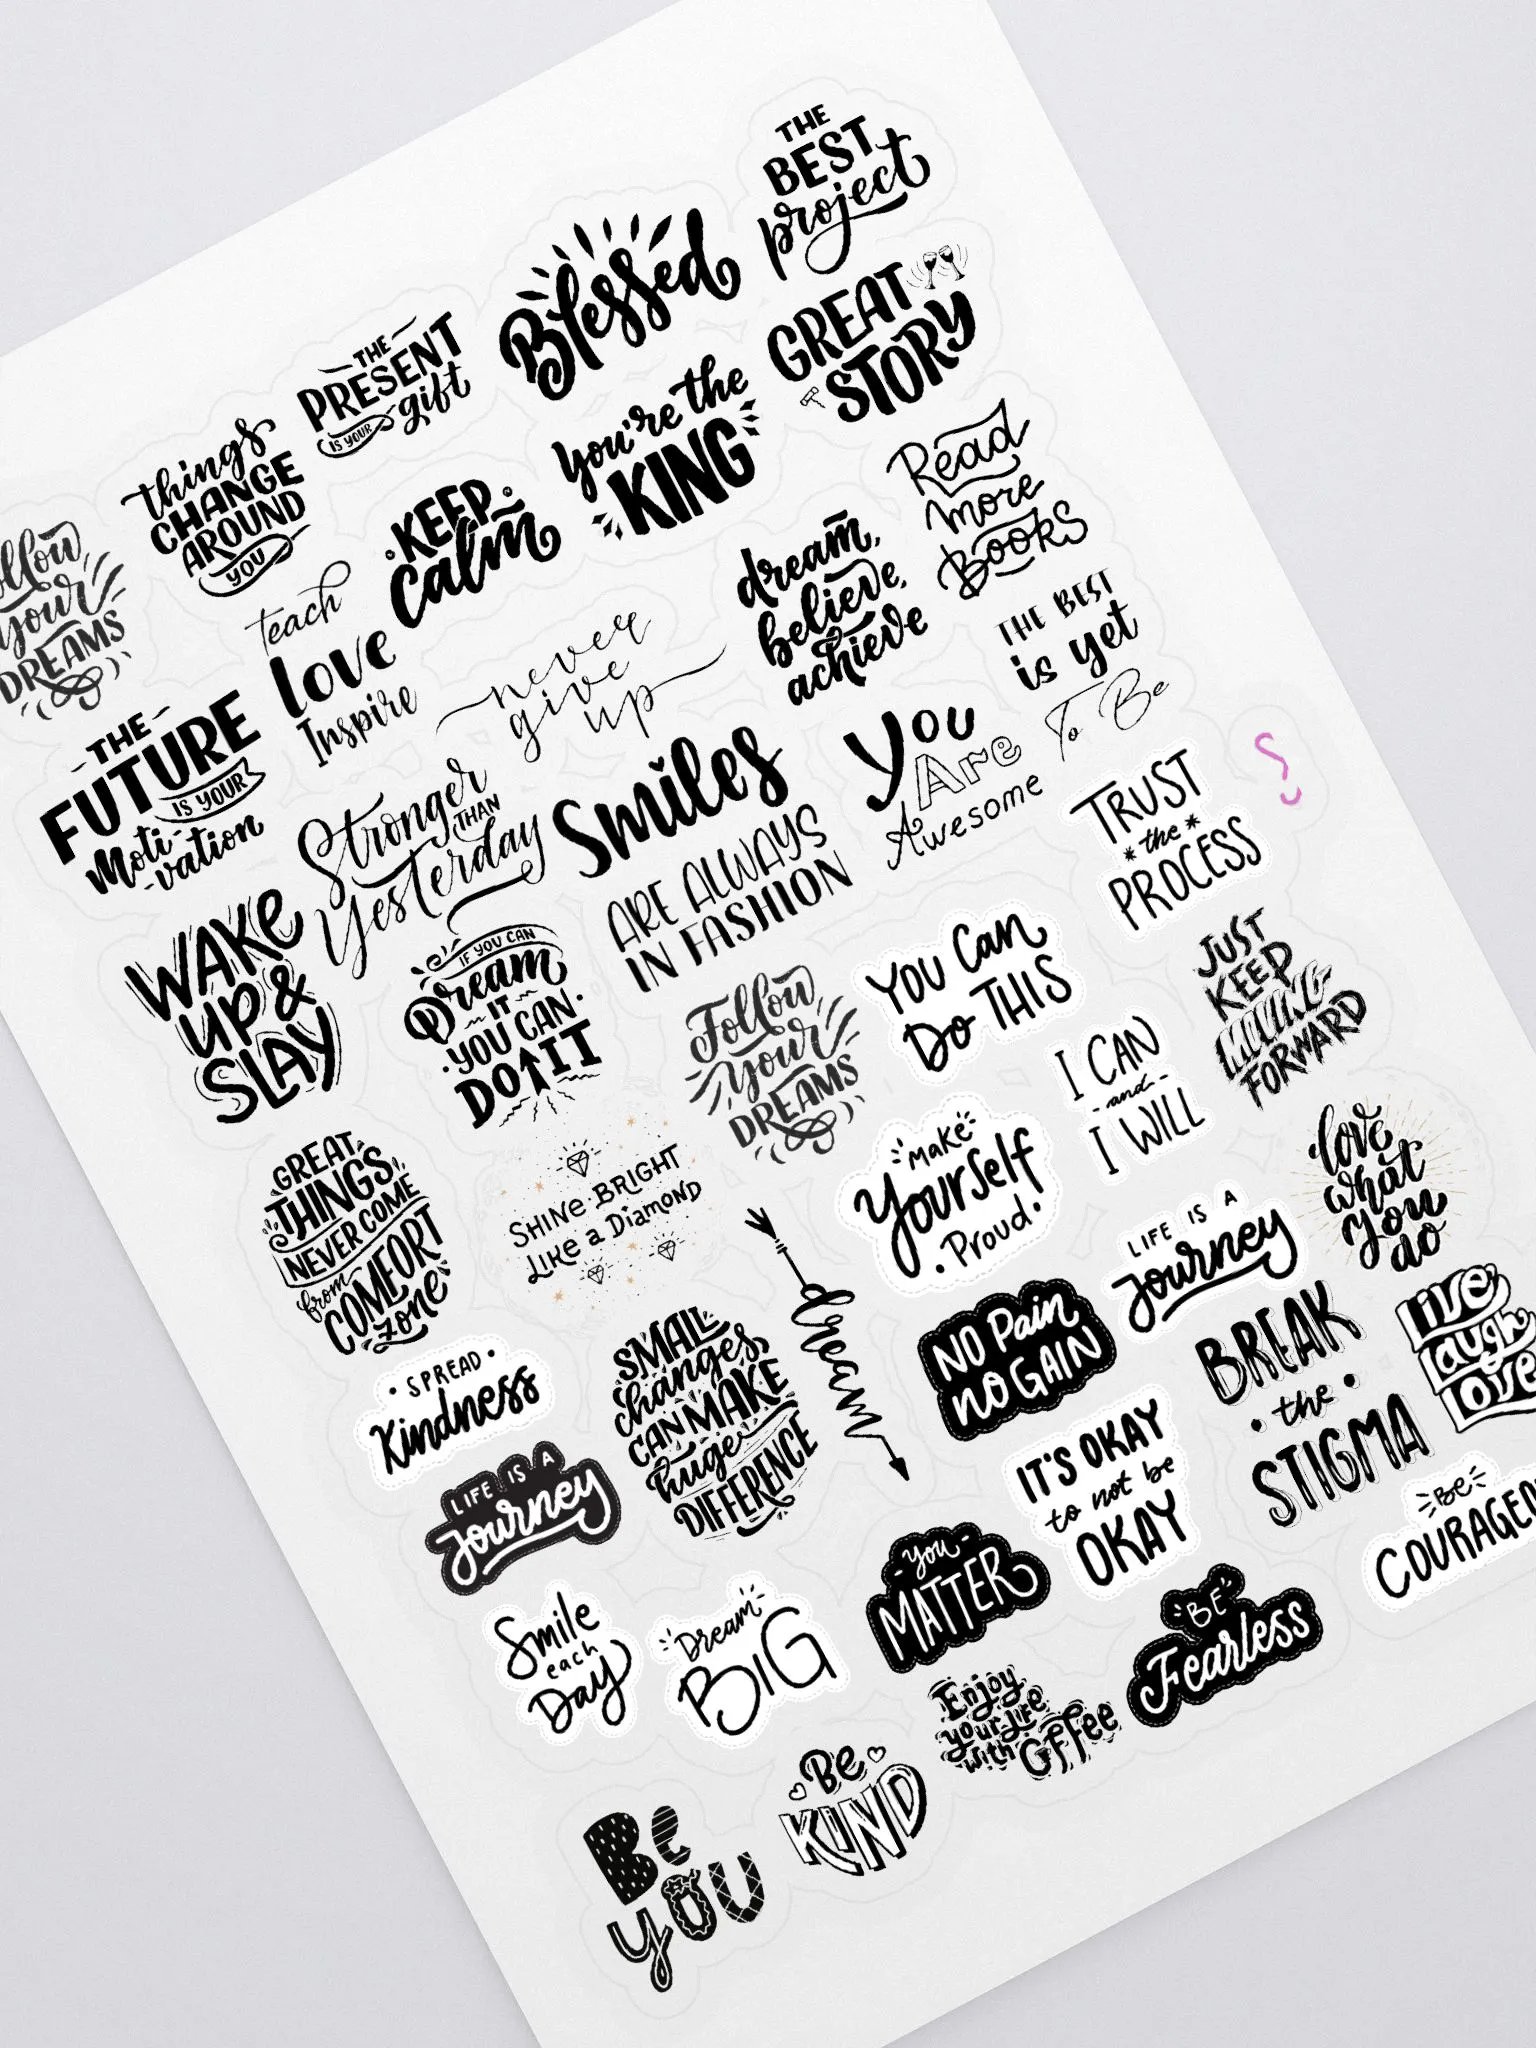 THE
BEST
project
Blessed
GREAT
STORY
THE
PRESENT
IS YOUR
gift
you're the
KING
things
CHANGE
AROUND
YOU
KEEP
calm
Read
more
Books
your
DREAMS
teach
love
Inspire
never
give
up
dream,
believe,
achieve
THE BEST
is yet
To Be
THE
FUTURE
IS YOUR
Moti-
-vation
Stronger
THAN
Yesterday
Smiles
ARE ALWAYS
IN FASHION
You
Are
Awesome
TRUST
the
PROCESS
WAKE
UP &
SLAY
IF YOU CAN
Dream
IT
YOU CAN
DO IT
Follow
your
DREAMS
YOU Can
Do THIS
JUST
KEEP
MOVING
FORWARD
I CAN
and
I WILL
GREAT
THINGS
NEVER COME
from
COMFORT
zone
SHINE BRIGHT
LIKE a DIAMOND
dream
Make
Yourself
Proud
LIFE IS A
Journey
love
what
you
do
SPREAD
Kindness
SMALL
changes
CAN MAKE
huge
DIFFERENCE
NO Pain
NO GAIN
BREAK
the
STIGMA
Live
Laugh
Love
LIFE IS A
Journey
IT'S OKAY
to not be
OKAY
Be
Smile
each
Day
Dream
BIG
You
MATTER
BE
Fearless
Enjoy
your Life
with Coffee
Be
KIND
Be
you